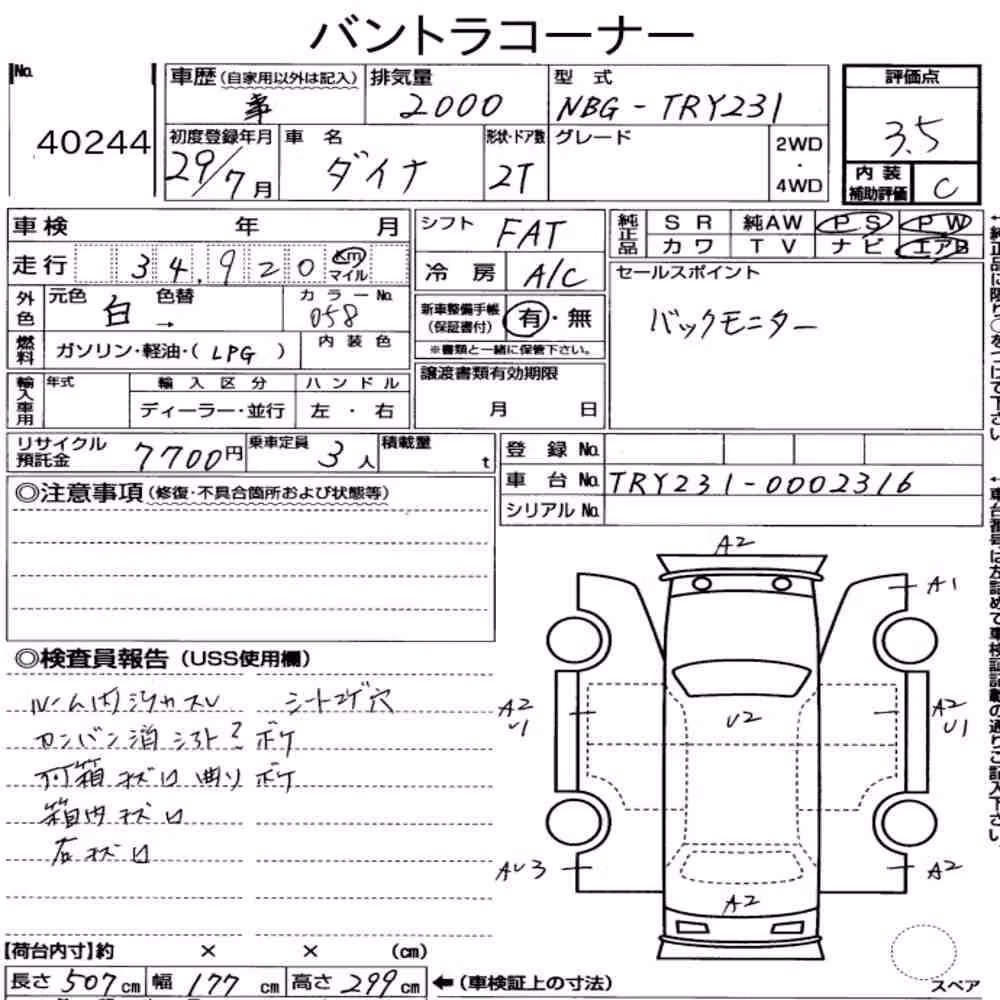 バントラコーナー
No. 40244
車歴(自家用以外は記入) 排気量 2000 型式 NBG-TRY231 評価点 3.5
初度登録年月 29/7月 車名 ダイナ 形状・ドア数 2T グレード 2WD・4WD
内装補助評価 C
車検 年 月
走行 34,920 Km マイル
外色 元色 白 色替 → カラーNo. 058
燃料 ガソリン・軽油・( LPG ) 内装色
輸入車用 年式 輸入区分 ディーラー・並行 ハンドル 左・右
シフト FAT
冷房 A/C
新車整備手帳(保証書付) 有・無
※書類と一緒に保管下さい。
譲渡書類有効期限
月 日
純正品 SR 純AW PS PW
カワ TV ナビ エアB
セールスポイント
バックモニター
リサイクル預託金 7700円 乗車定員 3人 積載量 t
登録No.
車台No. TRY231-0002316
シリアルNo.
◎注意事項(修復・不具合箇所および状態等)
◎検査員報告(USS使用欄)
ルーム内シワカスレ シートコゲ穴
カンバン消シアト ボケ
箱キズ凹曲り ボケ
箱内キズ凹
右キズ凹
A2
A1
A2
U1
U2
A2
U1
AU3
A2
A2
スペア
【荷台内寸】約 × × (cm)
長さ 507cm 幅 177cm 高さ 299cm ←(車検証上の寸法)